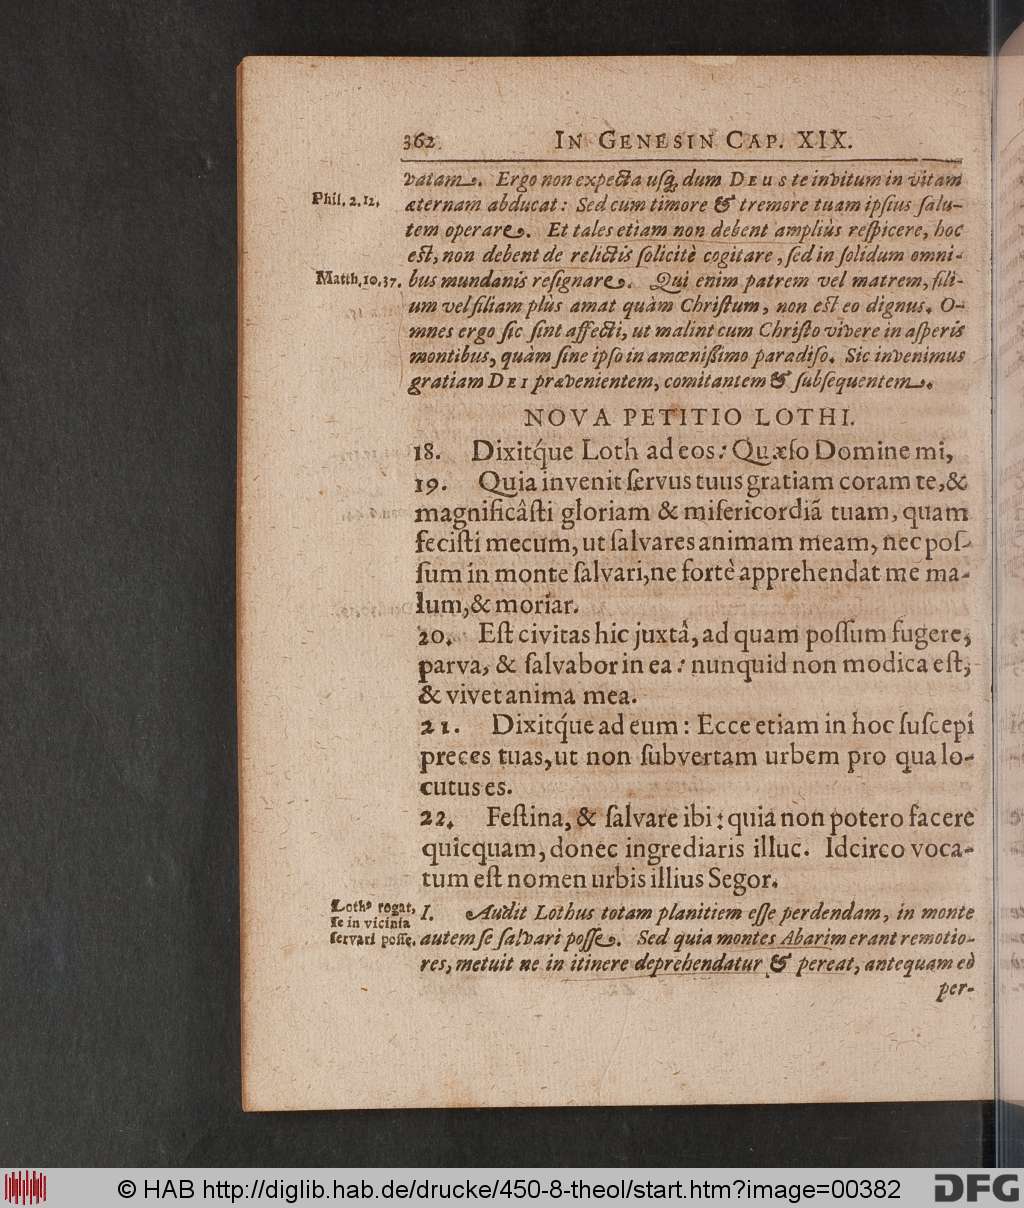 362 IN GENESIN CAP. XIX.
vatam. Ergo non expecta usq; dum DEUS te invitum in vitam
Phil. 2.12. æternam abducat: Sed cum timore & tremore tuam ipsius salu-
tem operare. Et tales etiam non debent ampliùs respicere, hoc
est, non debent de relictis solicitè cogitare, sed in solidum omni-
Matth. 10.37. bus mundanis resignare. Qui enim patrem vel matrem, fili-
um vel filiam plùs amat quàm Christum, non est eo dignus. O-
mnes ergo sic sint affecti, ut malint cum Christo vivere in asperis
montibus, quàm sine ipso in amœnissimo paradiso. Sic invenimus
gratiam DEI prævenientem, comitantem & subsequentem.
NOVA PETITIO LOTHI.
18. Dixitq́ue Loth ad eos: Quæso Domine mi,
19. Quia invenit servus tuus gratiam coram te, &
magnificâsti gloriam & misericordiã tuam, quam
fecisti mecum, ut salvares animam meam, nec pos-
sum in monte salvari, ne fortè apprehendat me ma-
lum, & moriar.
20. Est civitas hic juxtâ, ad quam possum fugere,
parva, & salvabor in ea: nunquid non modica est,
& vivet anima mea.
21. Dixitq́ue ad eum: Ecce etiam in hoc suscepi
preces tuas, ut non subvertam urbem pro qua lo-
cutus es.
22. Festina, & salvare ibi: quia non potero facere
quicquam, donec ingrediaris illuc. Idcirco voca-
tum est nomen urbis illius Segor.
Lothꝰ rogat,
se in vicinia
servari posse.
I. Audit Lothus totam planitiem esse perdendam, in monte
autem se salvari posse. Sed quia montes Abarim erant remotio-
res, metuit ne in itinere deprehendatur & pereat, antequam eò
per-
© HAB http://diglib.hab.de/drucke/450-8-theol/start.htm?image=00382
DFG